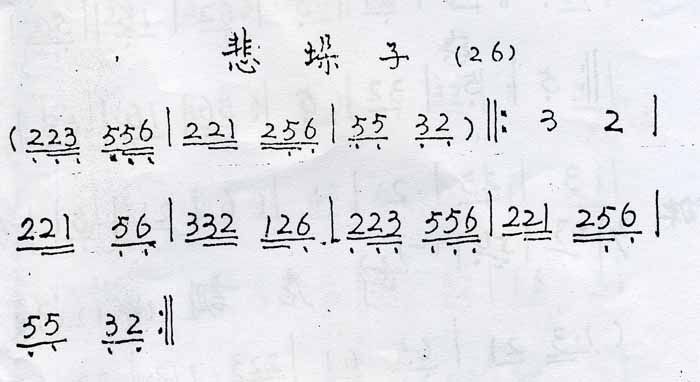 悲垛子(26)
(223 556|221 256|55 32)‖: 3 2|
221 56|332 126|223 556|221 256|
55 32:‖